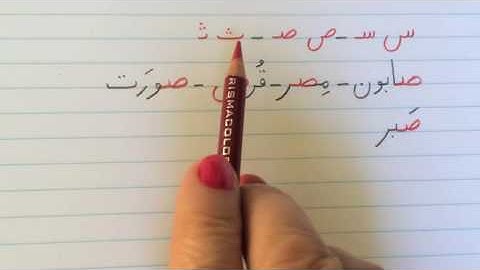 س سـ - ص صـ - ث ثـ
صابون - مِصر - قُرص - صورَت
صَبر
RISMACOLO